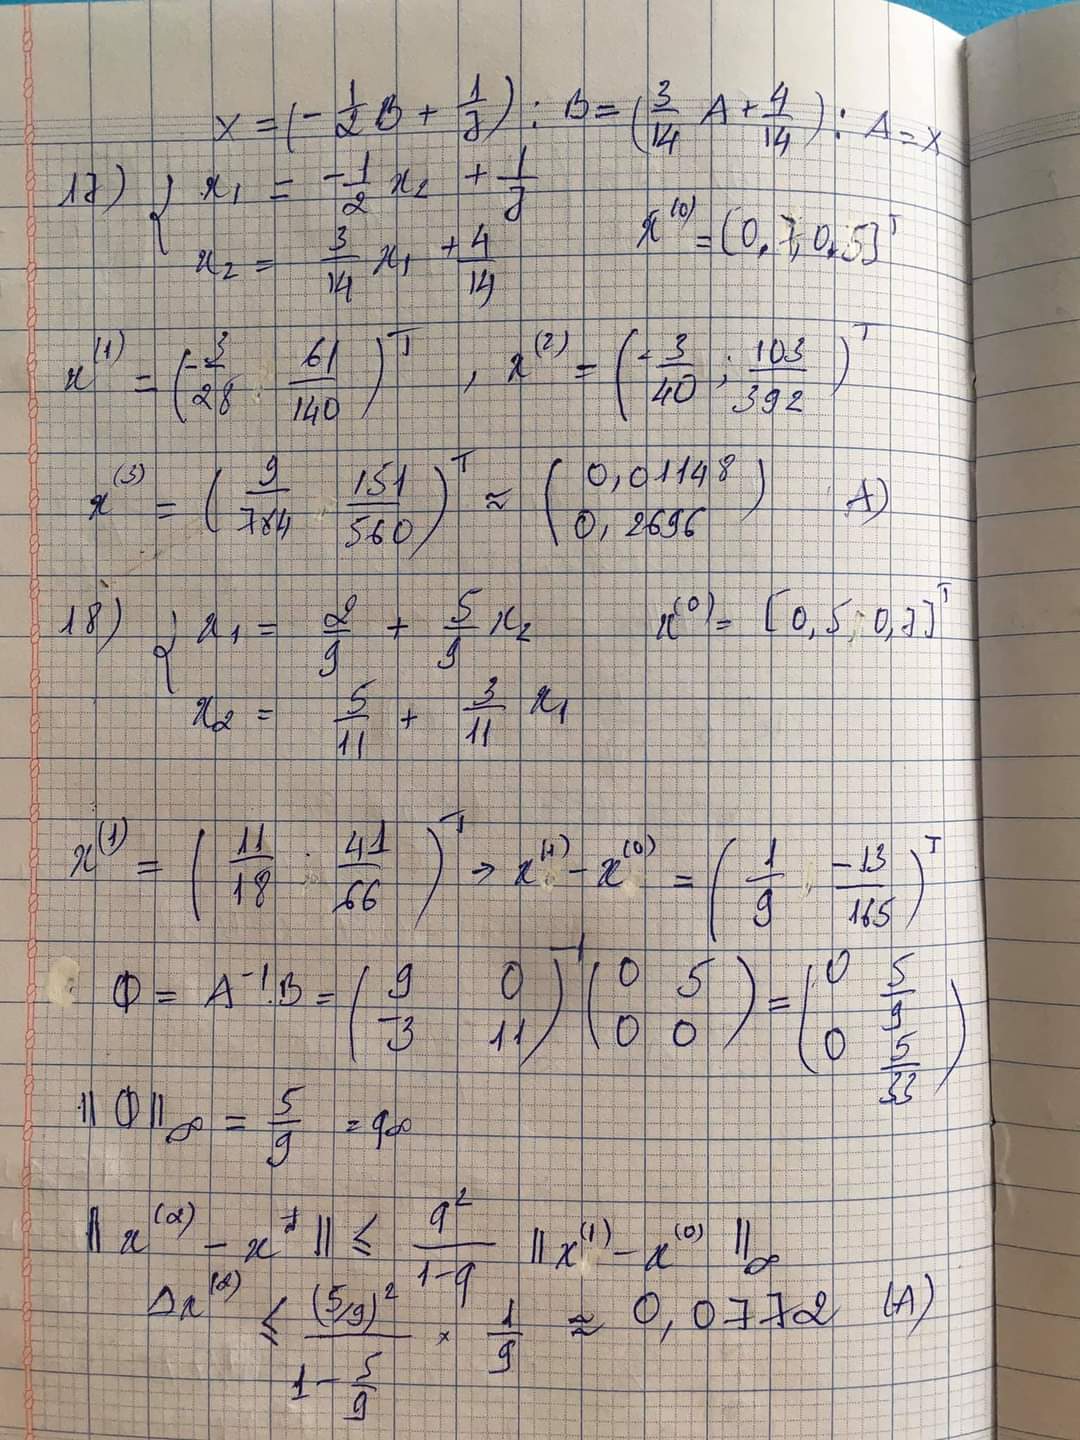 X = (-1/2 B + 1/7) : B = (3/14 A + 4/14) : A = X
17) { x₁ = -1/2 x₂ + 1/7
x₂ = 3/14 x₁ + 4/14 x⁽⁰⁾ = [0,7; 0,5]ᵀ
x⁽¹⁾ = (-3/28 ; 61/140)ᵀ , x⁽²⁾ = (-3/40 ; 103/392)ᵀ
x⁽³⁾ = (9/784 ; 151/560)ᵀ ≈ (0,01148 0,2696) A)
18) { x₁ = 2/9 + 5/9 x₂ x⁽⁰⁾ = [0,5; 0,7]ᵀ
x₂ = 5/11 + 3/11 x₁
x⁽¹⁾ = (11/18 ; 41/66)ᵀ → x⁽¹⁾ - x⁽⁰⁾ = (1/9 ; -13/165)ᵀ
Φ = A⁻¹.B = (9 0 -3 11)⁻¹ (0 5 0 0) = (0 5/9 0 5/33)
||Φ||∞ = 5/9 = q∞
||x⁽²⁾ - x*|| ≤ q²/1-q ||x⁽¹⁾ - x⁽⁰⁾||∞
Δx⁽²⁾ ≤ (5/9)²/1-5/9 × 1/9 ≈ 0,0772 (A)